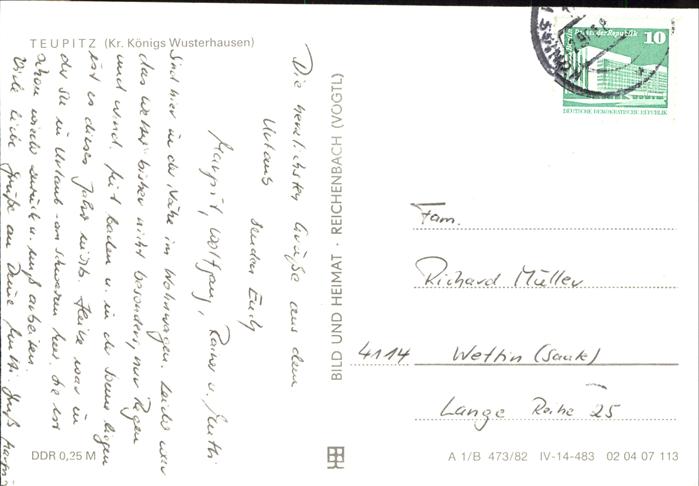 TEUPITZ (Kr. Königs Wusterhausen)
Die herzlichsten Grüße aus dem
Urlaub senden Euch
Margrit, Wolfgang, Rainer u.
Sind hier in der Nähe im Wohnwagen. Leider war
das Wetter bisher nicht besonders, nur Regen
und Wind. Mit baden u. in der Sonne liegen
ist es dieses Jahr nichts. Heike war in
der SU in Urlaub - am schwarzen Meer. Sie ist
schon wieder zurück u. muß arbeiten.
Viele liebe Grüße an Deine Gruß Margrit
DDR 0,25 M
BILD UND HEIMAT · REICHENBACH (VOGTL)
Palast der Republik 10
DEUTSCHE DEMOKRATISCHE REPUBLIK
Fam.
Richard Müller
4114 Wettin (Saale)
Lange Reihe 25
A 1/B 473/82 IV-14-483 02 04 07 113